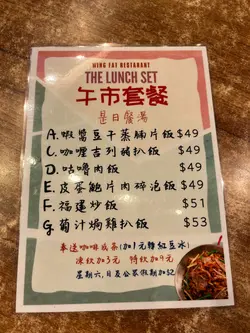 WING FAT RESTARANT
THE LUNCH SET
午市套餐
是日餐湯
A. 蝦醬豆干蒸腩片飯 $49
C. 咖喱吉列豬扒飯 $49
D. 咕嚕肉飯 $49
E. 皮蛋鮑片肉碎泡飯 $49
F. 福建炒飯 $51
G. 葡汁焗雞扒飯 $53
奉送咖啡或茶(加1元轉紅豆冰)
凍飲加3元 特飲加9元
星期六,日及公眾假期加$2